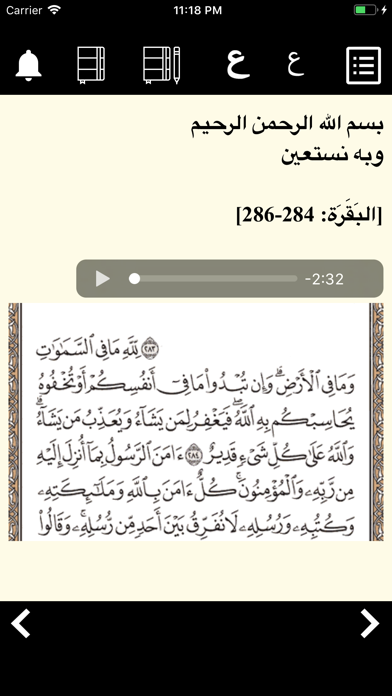 Carrier 11:18 PM
ع ع
بسم الله الرحمن الرحيم
وبه نستعين
[البَقَرَة: 284-286]
-2:32
٢٨٣ لِّلَّهِ مَا فِي ٱلسَّمَٰوَٰتِ
وَمَا فِي ٱلۡأَرۡضِۗ وَإِن تُبۡدُواْ مَا فِيٓ أَنفُسِكُمۡ أَوۡ تُخۡفُوهُ
يُحَاسِبۡكُم بِهِ ٱللَّهُۖ فَيَغۡفِرُ لِمَن يَشَآءُ وَيُعَذِّبُ مَن يَشَآءُۗ
وَٱللَّهُ عَلَىٰ كُلِّ شَيۡءٖ قَدِيرٌ ٢٨٤ ءَامَنَ ٱلرَّسُولُ بِمَآ أُنزِلَ إِلَيۡهِ
مِن رَّبِّهِۦ وَٱلۡمُؤۡمِنُونَۚ كُلٌّ ءَامَنَ بِٱللَّهِ وَمَلَٰٓئِكَتِهِۦ
وَكُتُبِهِۦ وَرُسُلِهِۦ لَا نُفَرِّقُ بَيۡنَ أَحَدٖ مِّن رُّسُلِهِۦۚ وَقَالُواْ